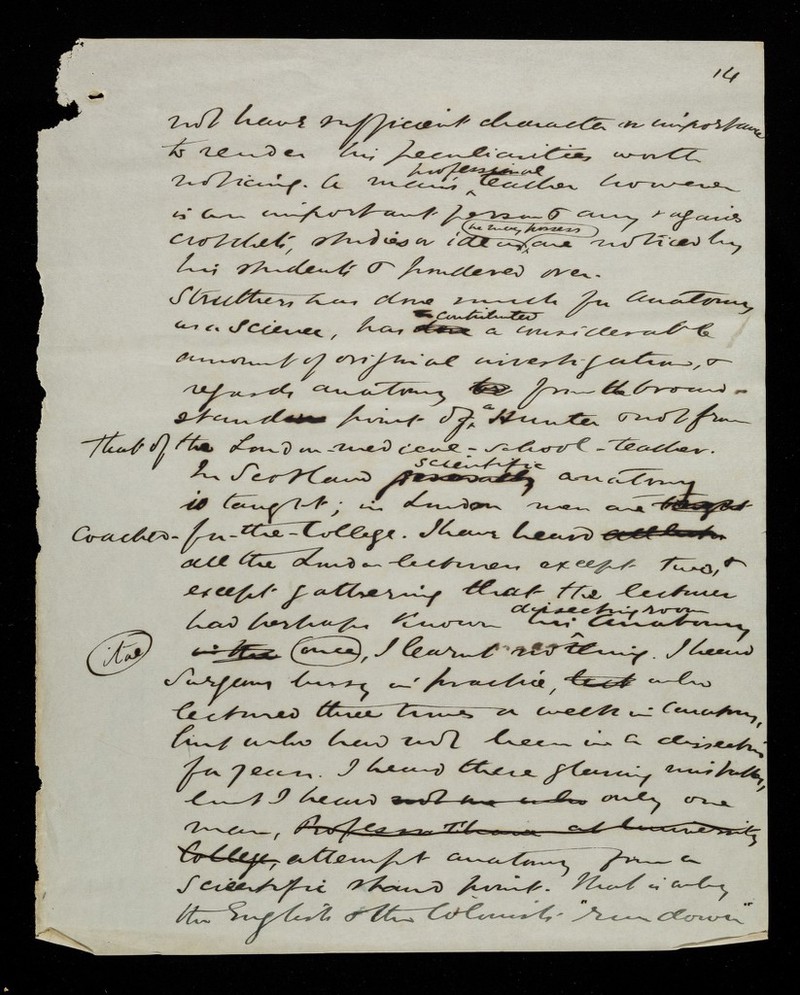 14
not have sufficient character or importance
to render his peculiarities worth
noticing. A man's professional teacher however
is an important person & any vagaries
crotchets, studies or ideas he may possess are noticed by
his students & pondered over.
Struthers has done much for Anatomy
as a Science, has contributed a considerable
amount of original investigation, &
regards anatomy from the broad-
stand point of a Hunter & not from
that of the London-medical-school-teacher.
In Scotland scientific anatomy
is taught; in London men are
coached-for-the-College. I have heard
all the London lecturers except two, &
except gathering that the lecturer
had perhaps known his dissecting room Anatomy
once, I learnt nothing. I heard
Surgeons busy in practice, who
lectured three times a week in Anatomy,
but who had not been in a dissecting
for years. I heard there glaring mistakes,
but I heard only one
man, Professor Thane at University
College, attempt anatomy from a
Scientific stand point. That is why
the English & the Colonists "run down"